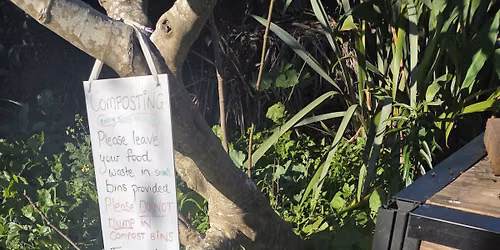 COMPOSTING
Please leave
your food
waste in small
bins provided
Please DO NOT
Dump IN
COMPOST BINS